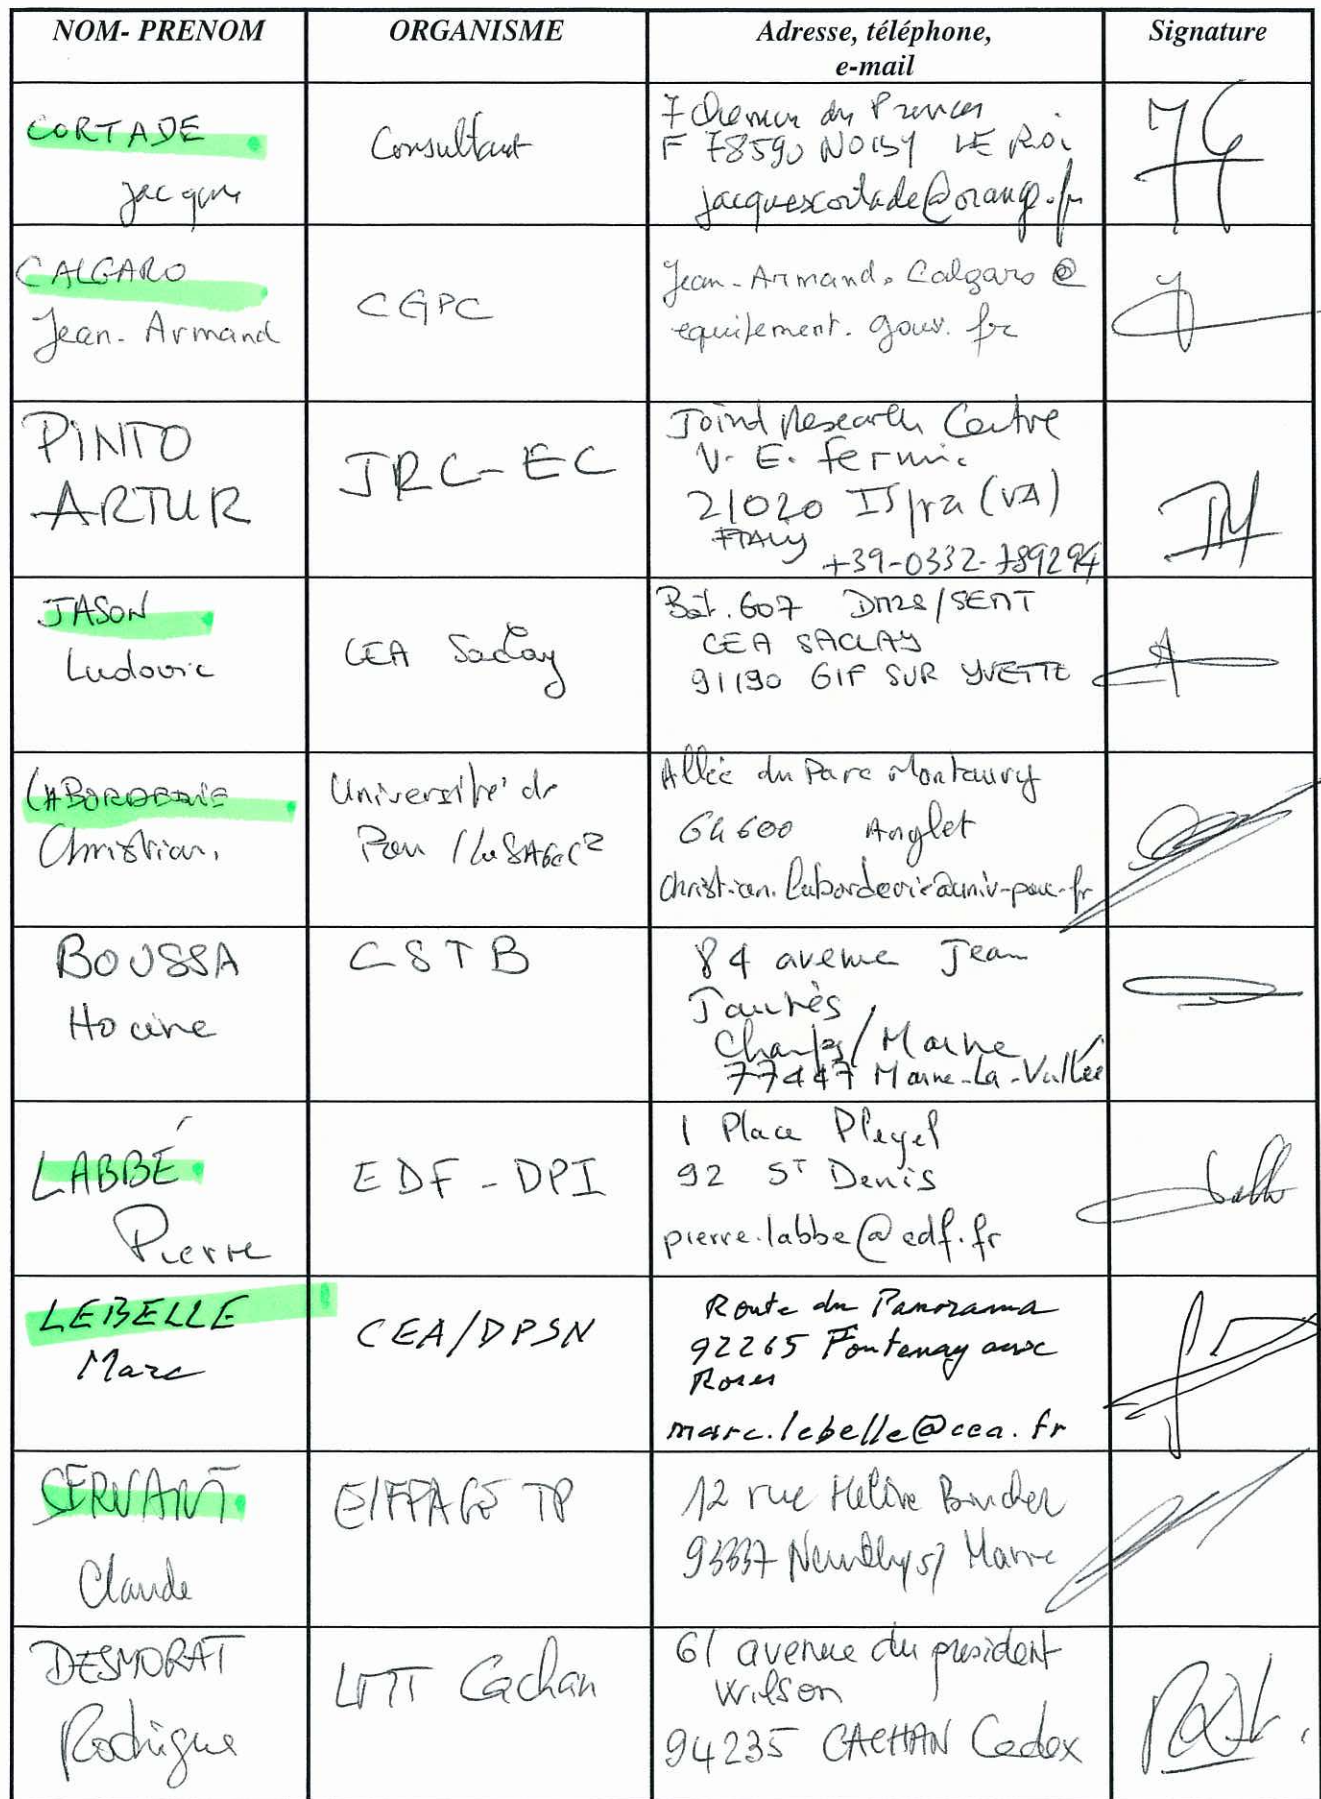 NOM- PRENOM
ORGANISME
Adresse, téléphone,
e-mail
Signature
CORTADE
Jacques
Consultant
7 Chemin du Princes
F 78590 NOISY LE Roi
jacquescortade@orange.fr
CALGARO
Jean-Armand
CGPC
Jean-Armand.Calgaro@
equipement.gouv.fr
PINTO
ARTUR
JRC-EC
Joint Research Centre
V. E. Fermi
21020 Ispra (VA)
ITALY
+39-0332-789294
JASON
Ludovic
CEA Saclay
Bât.607 DM2S/SEMT
CEA SACLAY
91190 GIF SUR YVETTE
LABORDERIE
Christian
Université de
Pau / LaSAGeC2
Allée du Parc Montaury
64600 Anglet
christian.laborderie@univ-pau.fr
BOUSSA
Hocine
CSTB
84 avenue Jean
Jaurès
Champs/Marne
77447 Marne-La-Vallée
LABBÉ
Pierre
EDF - DPI
1 Place Pleyel
92 ST Denis
pierre.labbe@edf.fr
LEBELLE
Marc
CEA/DPSN
Route du Panorama
92265 Fontenay aux
Roses
marc.lebelle@cea.fr
SERVANT
Claude
EIFFAGE TP
12 rue Hélène Boucher
93337 Neuilly s/ Marne
DESMORAT
Rodrigue
LMT Cachan
61 avenue du president
Wilson
94235 CACHAN Cedex